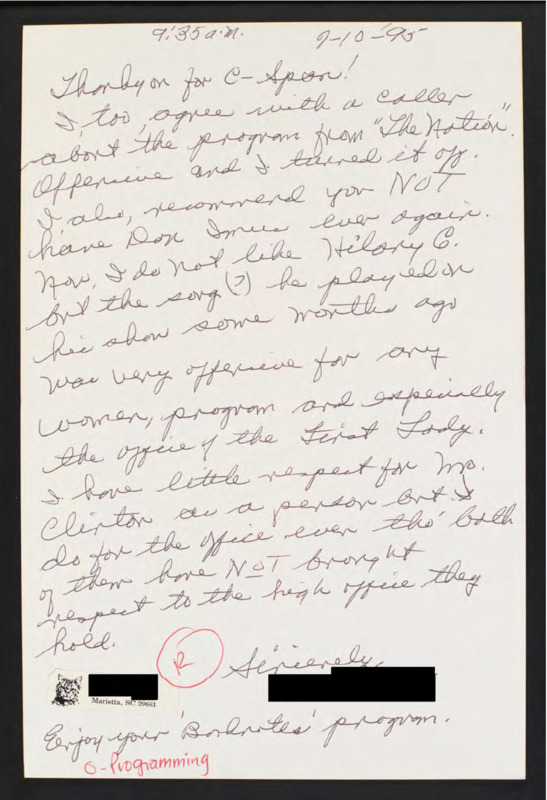 9:35 a.m. 9-10-95
Thank you for C-Span!
I, too, agree with a caller
about the program from "The Nation".
Offensive and I turned it off.
I also, recommend you NOT
have Don Imus ever again.
Now, I do not like Hilary C.
but the song (?) he played on
his show some months ago
was very offensive for any
women, program and especially
the office of the First Lady.
I have little respect for Mrs.
Clinton as a person but I
do for the office even tho' both
of them have NOT brought
respect to the high office they
hold.
R
Sincerely,
Marietta, SC 29661
Enjoy your 'Booknotes' program.
O-Programming